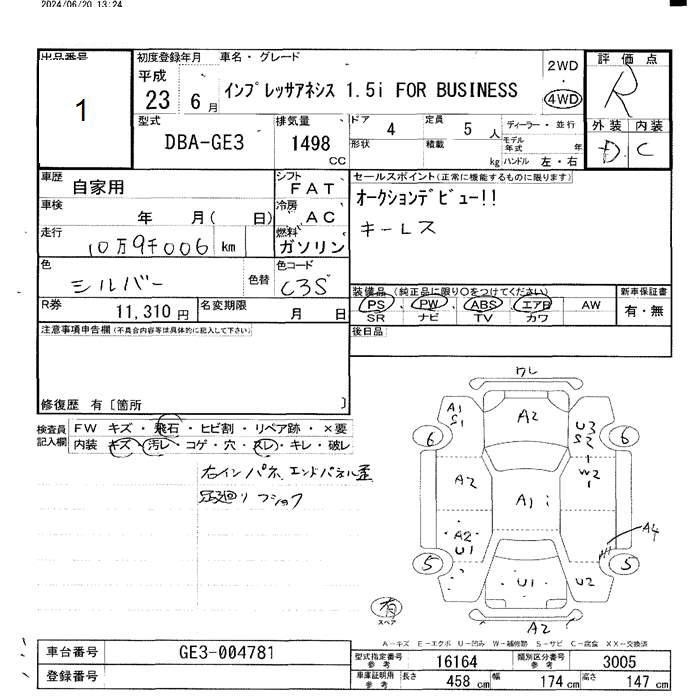 2024/06/20 13:24
出品番号 初度登録年月 車名・グレード 評価点
1
平成 23 6月 インプレッサアネシス 1.5i FOR BUSINESS 2WD 4WD R
型式 DBA-GE3 排気量 1498 CC
ドア 4 定員 5 人 ディーラー・並行
形状 積載 kg モデル年式 年 ハンドル 左・右
外装 内装
D C
車歴 自家用 シフト FAT
セールスポイント(正常に機能するものに限ります)
車検 年 月( 日) 冷房 AC
オークションデビュー!!
走行 10万9千006 km 燃料 ガソリン
キーレス
色 シルバー 色替 色コード C3S
R券 11,310円 名変期限 月 日
装備品 (純正品に限り○をつけてください) 新車保証書
PS PW ABS エアB AW 有・無
SR ナビ TV カワ
注意事項申告欄(不具合内容等は具体的に記入して下さい)
後日品
修復歴 有〔箇所 〕
検査員記入欄 FW キズ・飛石・ヒビ割・リペア跡・×要
内装 キズ・汚レ・コゲ・穴・スレ・キレ・破レ
右インパネ、エンドパネル歪
ワレ
A1 S1 A2 U3 S2 1
6 6
A2 A1 W2 1
A2 U1 A4
5 5
U1 U2
有 スペア
A2
A-キズ E-エクボ U-凹み W-補修跡 S-サビ C-腐食 XX-交換済
車台番号 GE3-004781
型式指定番号 参考 16164 類別区分番号 参考 3005
登録番号
車庫証明用 参考 長さ 458 cm 幅 174 cm 高さ 147 cm